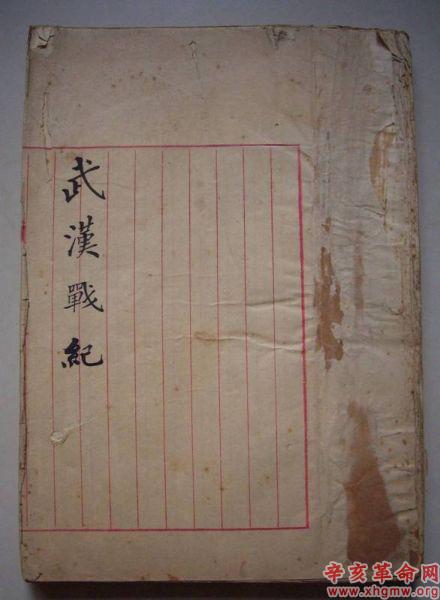 武漢戰紀
辛亥革命网
www.xhgmw.org